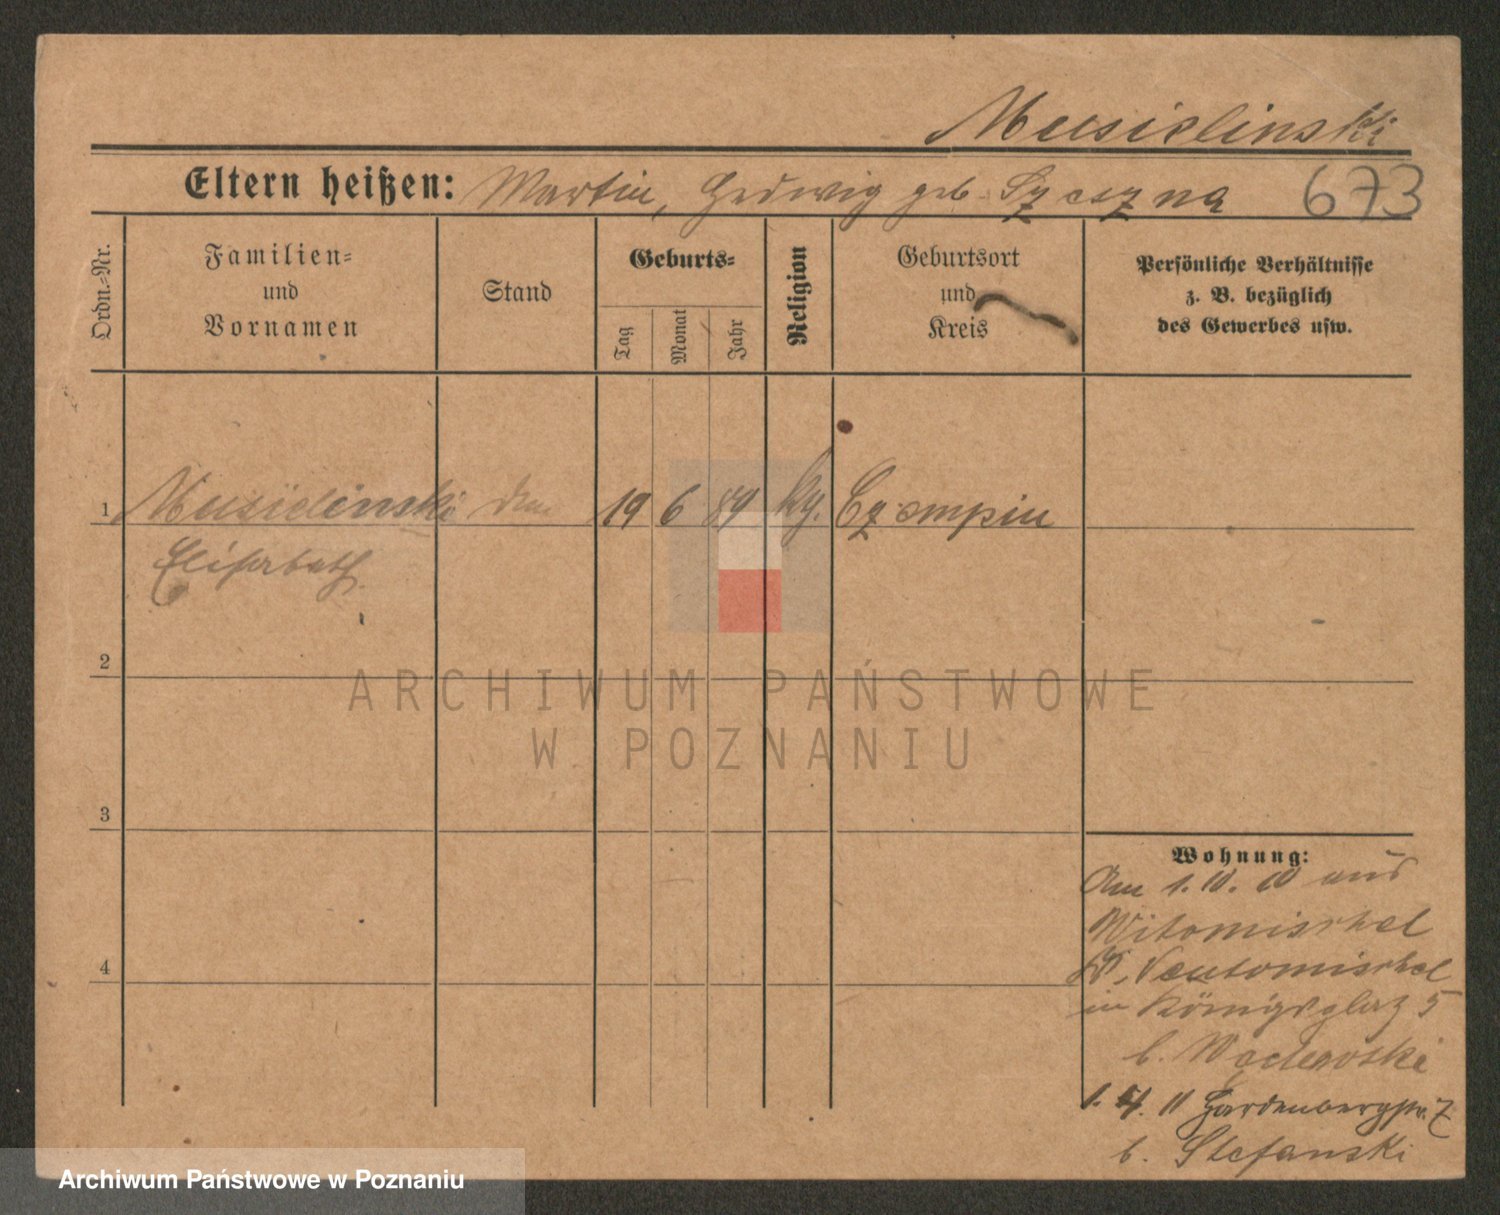 Musielinski
Eltern heißen: Martin, Hedwig geb. Szeszna 673
Ordn.-Nr.
Familien-
und
Vornamen
Stand
Geburts-
Tag
Monat
Jahr
Religion
Geburtsort
und
Kreis
Persönliche Verhältnisse
z. B. bezüglich
des Gewerbes usw.
1 Musielinski 19 6 89 kg. Czempin
Elisabeth
2
3
4
Wohnung:
Am 1. 10. 10 aus
Witomischel
Neutomischel
in Königsplatz 5
b.
1. 4. 11 Hardenbergstr. 7
b. Stefanski
ARCHIWUM PAŃSTWOWE
W POZNANIU
Archiwum Państwowe w Poznaniu